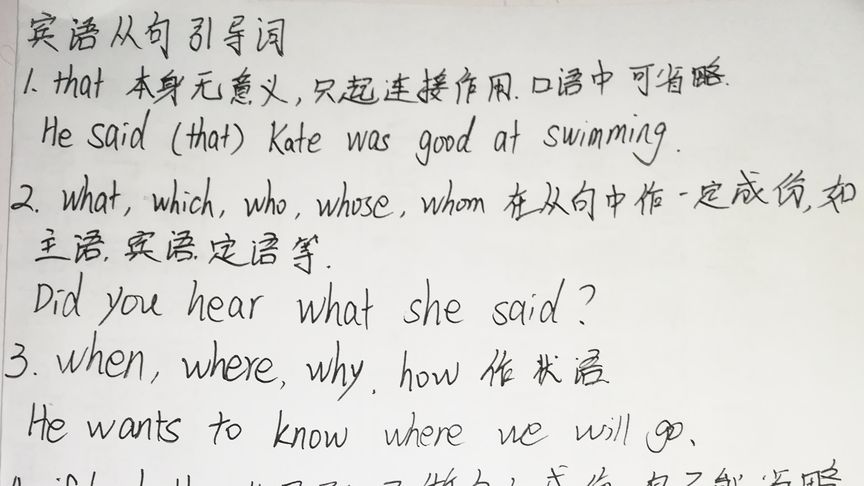 宾语从句引导词
1. that 本身无意义,只起连接作用.口语中可省略.
He said (that) Kate was good at swimming.
2. what, which, who, whose, whom 在从句中作一定成份,如
主语.宾语.定语等.
Did you hear what she said?
3. when, where, why, how 作状语
He wants to know where we will go.